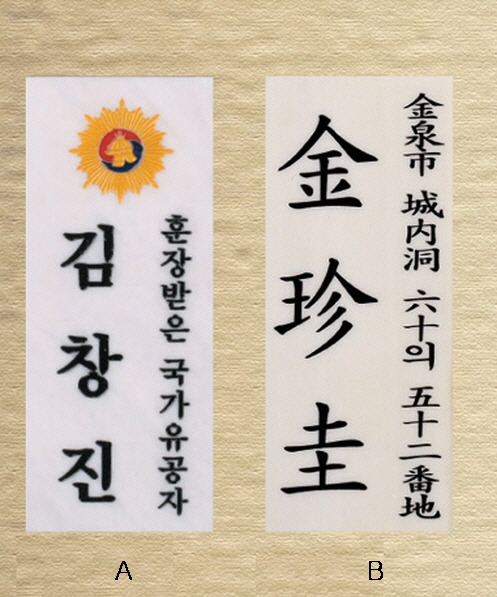 김창진
훈장받은 국가유공자
金珍圭
金泉市 城内洞 六十의 五十二番地
A
B